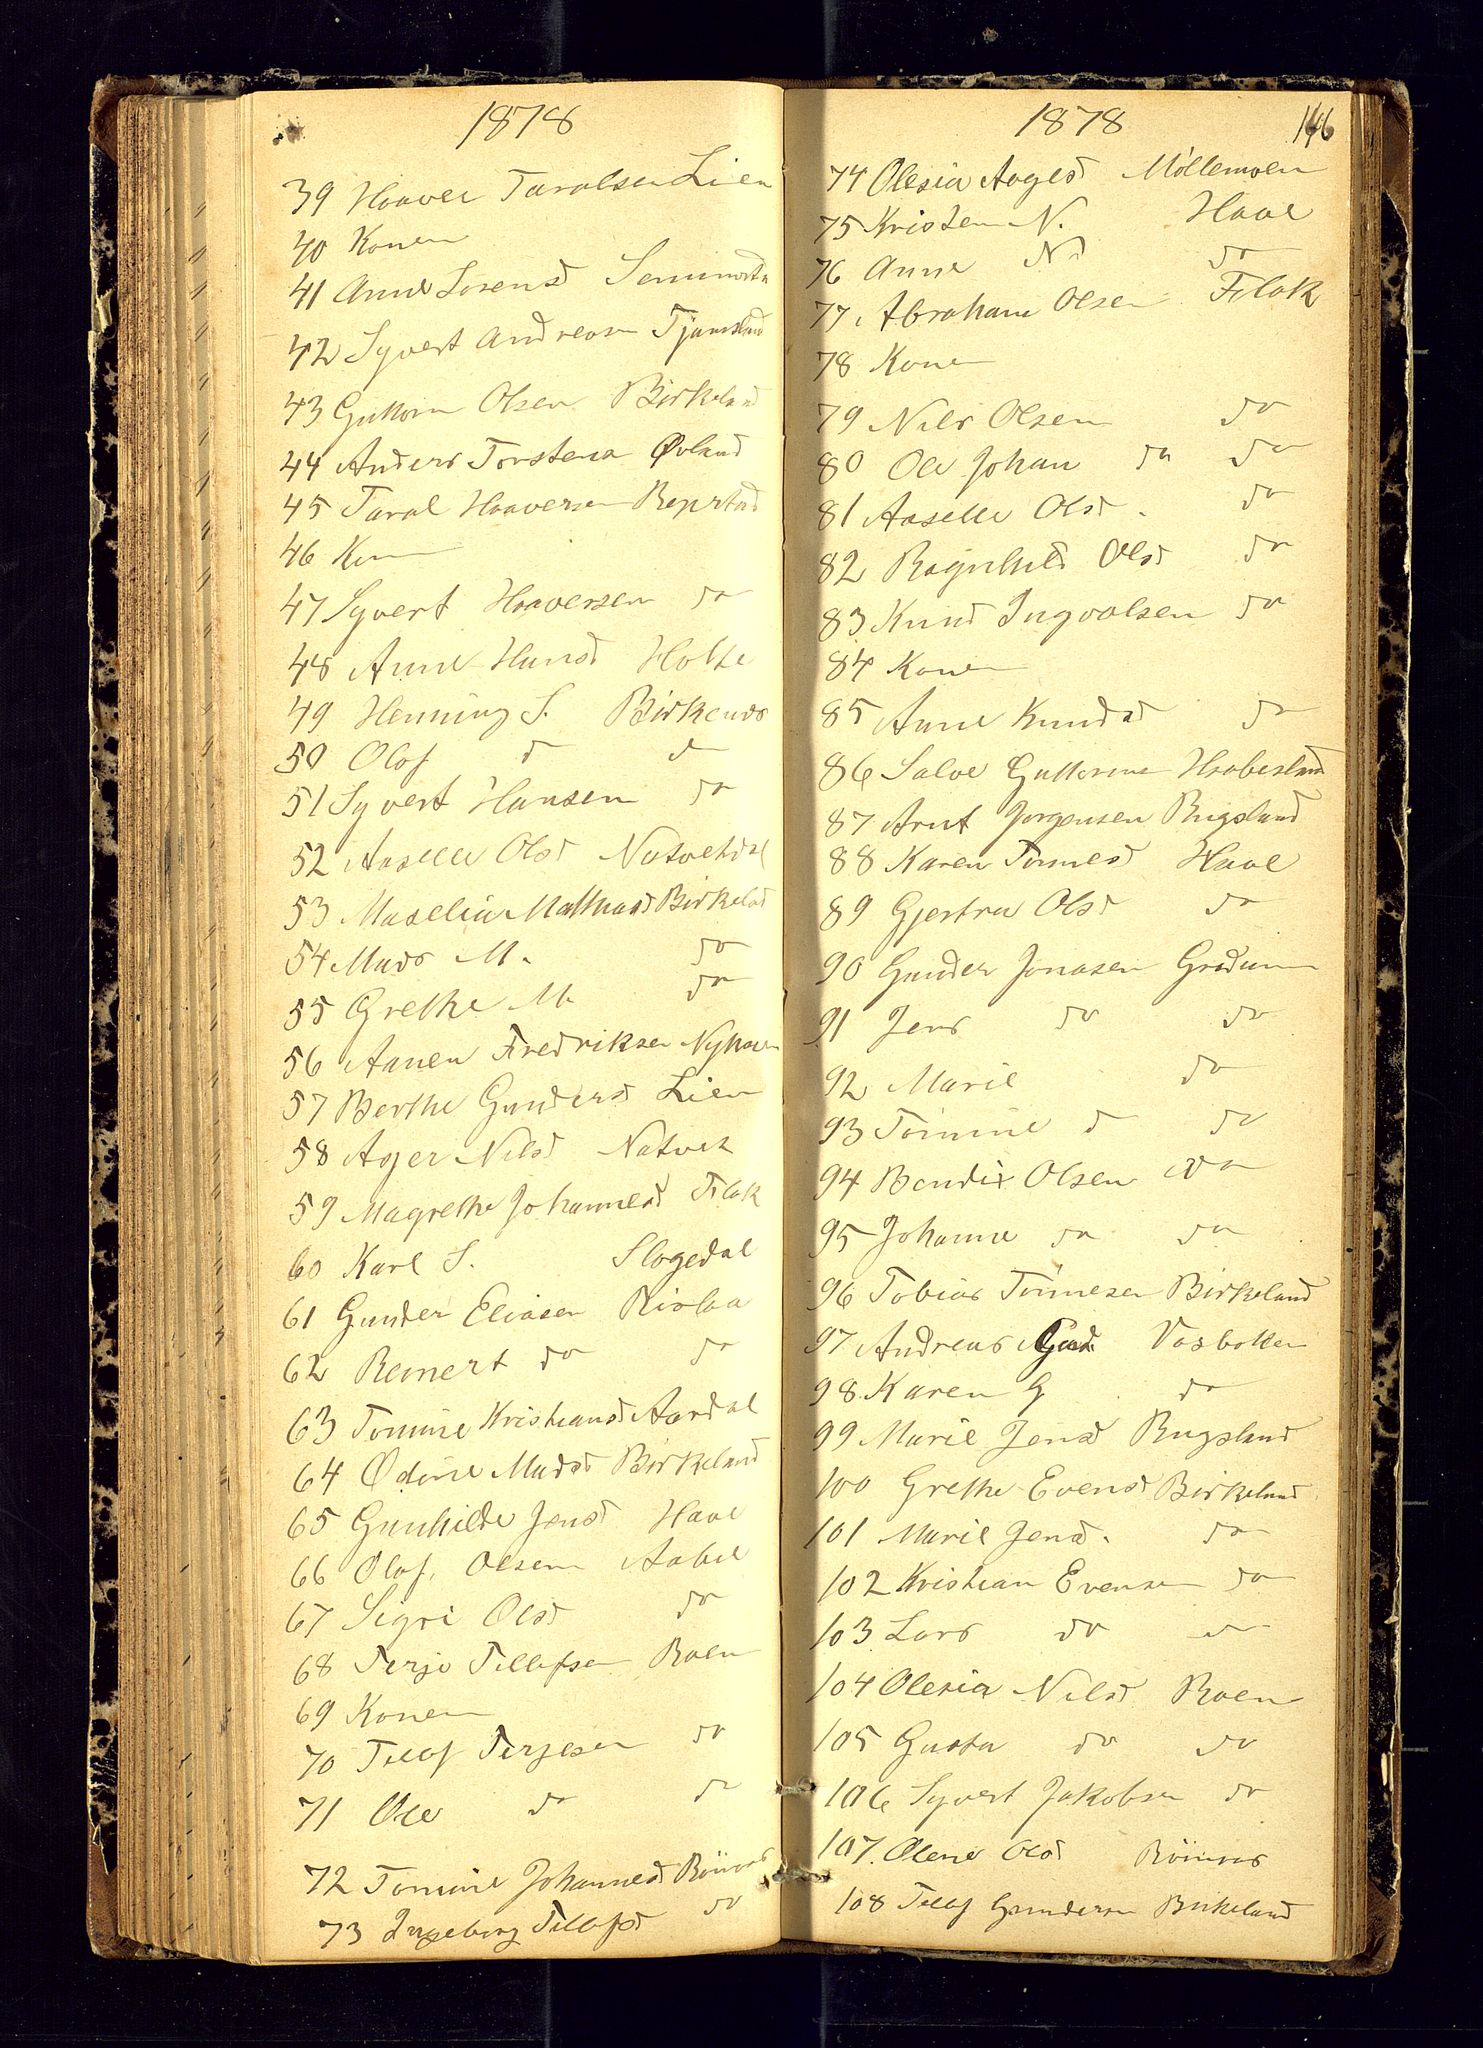 1878
39 Haaver Taralsen Lien
40 Konen
41 Anne Sorensd
42 Syvert Andreasen Tjamsland
43 Guttorm Olsen Birkeland
44 Anders Torstens Øvland
45 Taral Haaversen Repstad
46 Kon
47 Syvert Haaversen do
48 Anne Hansd Holte
49 Henning S. Birkends
50 Olaf d do
51 Syvert Hansen do
52 Aaselle Olsd
53 Maselia Mathiasd Birkeland
54 Mads M. do
55 Grethe M. do
56 Aanen Fredriksen
57 Berthe Gundersd Lien
58 Ager Nilsd Natvet
59 Magrethe Johannesd Flak
60 Karl S. Slogedal
61 Gunder Eliasen Risløa
62 Reinert do do
63 Tomine Kristiansd Aardal
64 Odine Madsd Birkeland
65 Gunhilde Jensd Haae
66 Olaf Olsen Aabel
67 Sigri Olsd do
68 Terje Tellefsen Roen
69 Konen
70 Tellef Terjesen do
71 Ole do do
72 Tomine Johannesd
73 Ingeborg Tellefsd do
1878 146
74 Olesia Aagesd Möllemoen
75 Kristen N. Haae
76 Anne Nd do
77 Abraham Olsen Filak
78 Konen
79 Nils Olsen do
80 Ole Johan do do
81 Aaselle Olsd. do
82 Ragnhild Olsd do
83 Knud Ingvalsen do
84 Konen
85 Anne Knudsd do
86 Salve Guttormsen Haabesland
87 Arnt Jorgensen Rugsland
88 Karen Tönnesd Haae
89 Gjertru Olsd do
90 Gunder Jonasen
91 Jens do do
92 Marie do
93 Tomine d do
94 Bendix Olsen do
95 Johanne do do
96 Tobias Tönnesen Birkeland
97 Andreas Vasboten
98 Karen G do
99 Marie Jensd Rugsland
100 Grethe Evensd Birkeland
101 Marie Jensd. do
102 Kristian Evensen do
103 Lars do do
104 Olesia Nilsd Roen
105 Gusta do do
106 Syvert Jakobsen do
107. Olene Olsd
108 Tellef Gundersn Birkeland